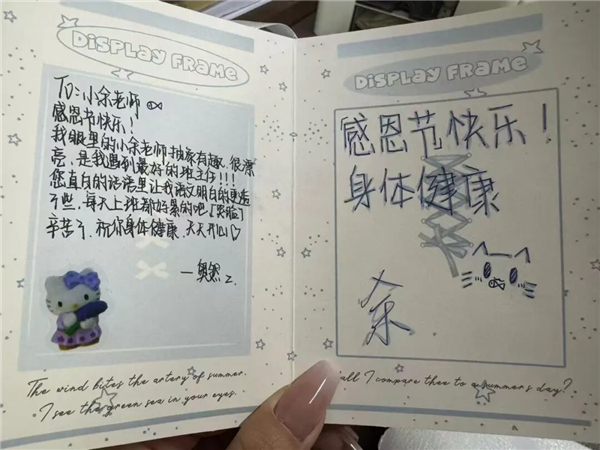 DISPLAY FRAME
TO:小余老师
感恩节快乐!
我眼里的小余老师,独家有趣,很漂
亮,是我遇到最好的班主任!!!
您直白的话语里让我语文明白的更透
了些,每天上班都好累的吧[哭脸]
辛苦了,祝你身体健康,天天开心♡
The wind bites the artery of summer.
I see the green sea in your eyes.
DISPLAY FRAME
感恩节快乐!
身体健康
hall I compare thee to a summer's day?